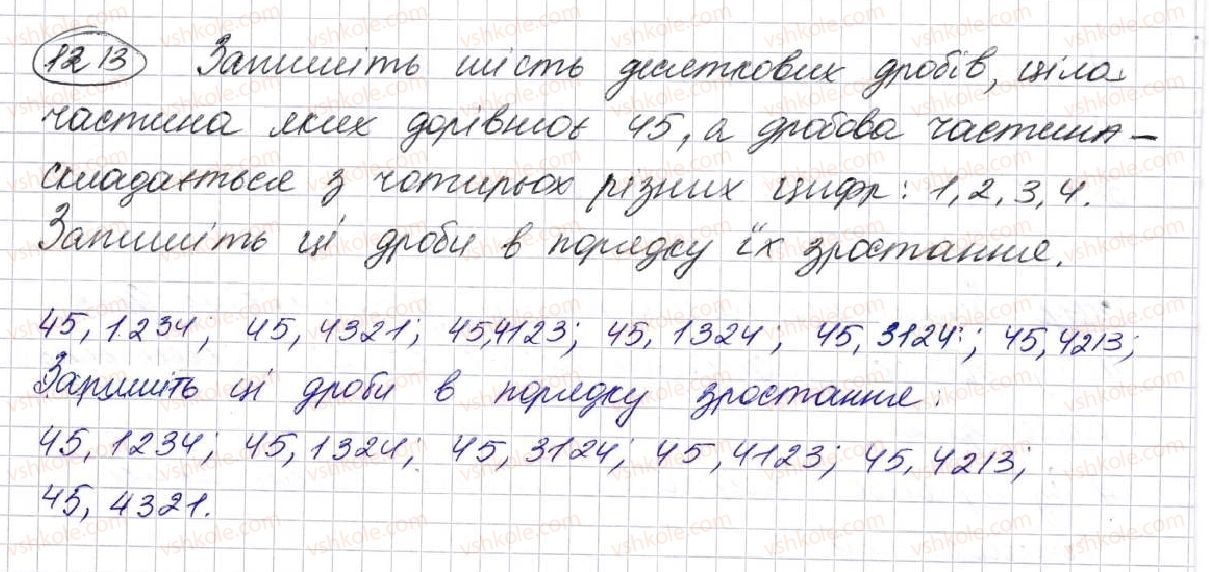 1213 Запишіть шість десяткових дробів, ціла
частина яких дорівнює 45, а дробова частина –
складається з чотирьох різних цифр: 1, 2, 3, 4.
Запишіть ці дроби в порядку їх зростання.
45,1234; 45,4321; 45,4123; 45,1324; 45,3124; 45,4213;
Запишіть ці дроби в порядку зростання:
45,1234; 45,1324; 45,3124; 45,4123; 45,4213;
45,4321.